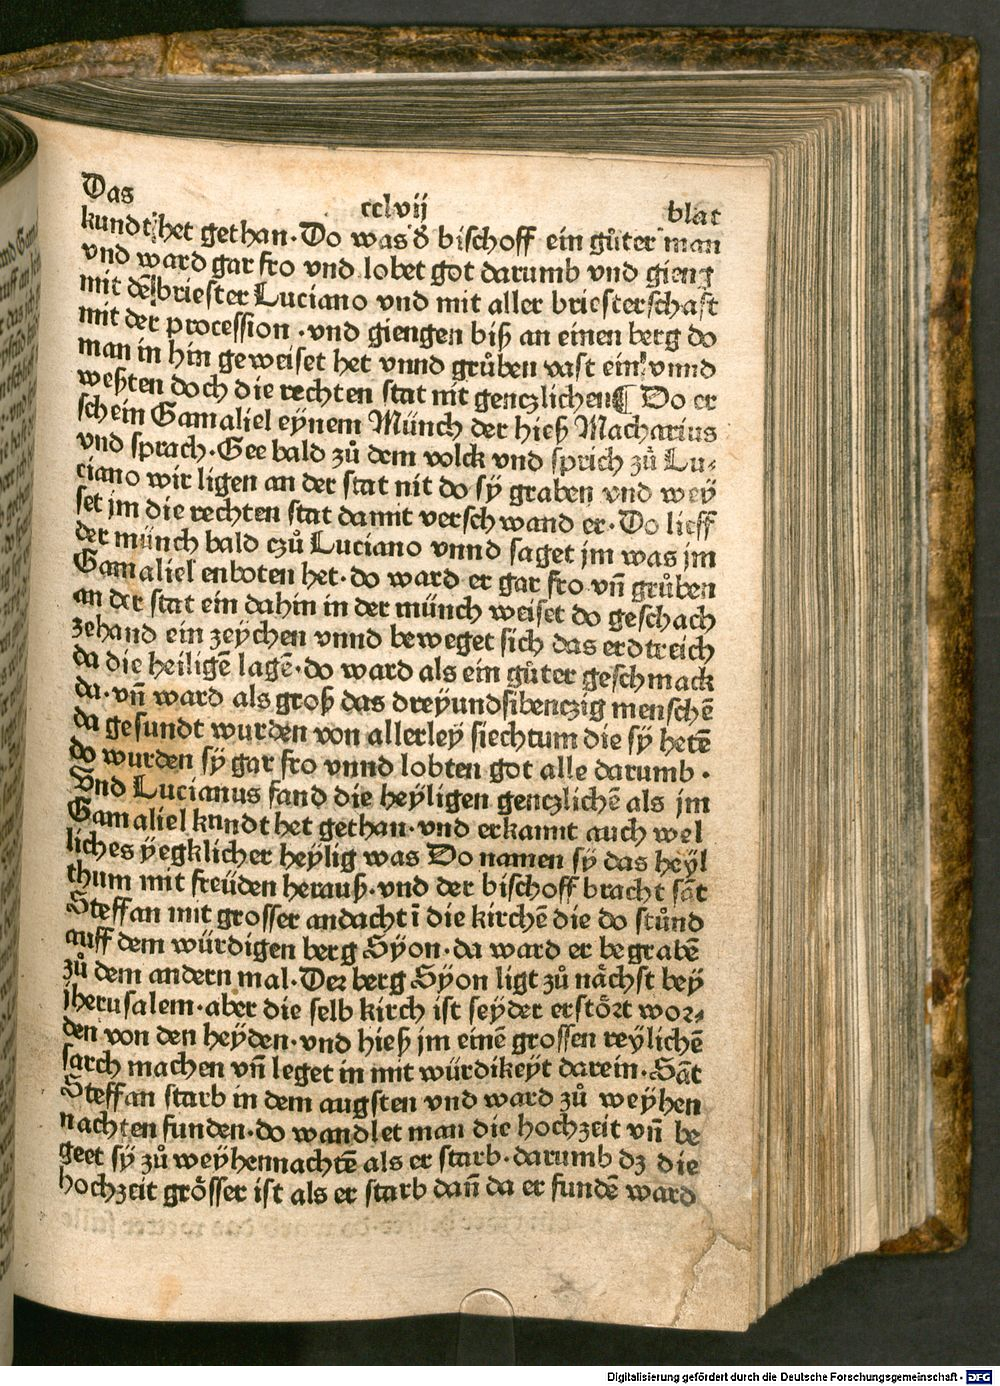 Das cclvij blat
kundt het gethan. Do was d̕ bischoff ein gůter man
vnd ward gar fro vnd lobet got darumb vnd gieng
mit dē briester Luciano vnd mit aller briesterschaft
mit der procession . vnd giengen biß an einen berg do
man in hin geweiset het vnnd grůben vast ein vnnd
weßten doch die rechten stat nit genczlichen ¶ Do er
schein Gamaliel eynem Münch der hieß Macharius
vnd sprach. Gee bald zů dem volck vnd sprich zů Lu⸗
ciano wir ligen an der stat nit do sÿ graben vnd weÿ
set jm die rechten stat damit verschwand er. Do lieff
der münch bald czů Luciano vnnd saget jm was jm
Gamaliel enboten het. do ward er gar fro vn̄ grůben
an der stat ein dahin in der münch weiset do geschach
zehand ein zeÿchen vnnd beweget sich das erdtreich
da die heiligē lagē. do ward als ein gůter geschmack
da. vn̄ ward als groß das dreÿundsibenczig menschē
da gesundt wurden von allerleÿ siechtum die sÿ hetē
do wurden sÿ gar fro vnnd lobten got alle darumb .
Vnd Lucianus fand die heÿligen genczlichē als jm
Gamaliel kundt het gethan. vnd erkannt auch wel
liches ÿegklicher heÿlig was Do namen sÿ das heÿl
thum mit freüden herauß. vnd der bischoff bracht sāt
Steffan mit grosser andacht ī die kirchē die do stůnd
auff dem würdigen berg Sÿon. da ward er begrabē
zů dem andern mal. Der berg Sÿon ligt zů nächst beÿ
jherusalem. aber die selb kirch ist seÿder erstört wor⸗
den von den heÿden. vnd hieß jm einē grossen reÿlichē
sarch machen vn̄ leget in mit würdikeÿt darein. Sāt
Steffan starb in dem augsten vnd ward zů weÿhen
nachten funden. do wandlet man die hochzeit vn̄ be
geet sÿ zů weÿhennachtē als er starb. darumb dz die
hochzeit grösser ist als er starb dañ da er fundē ward
Digitalisierung gefördert durch die Deutsche Forschungsgemeinschaft - DFG